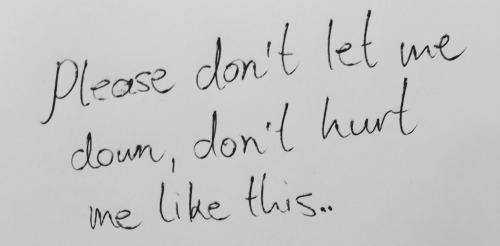 Please don't let me
down, don't hurt
me like this..